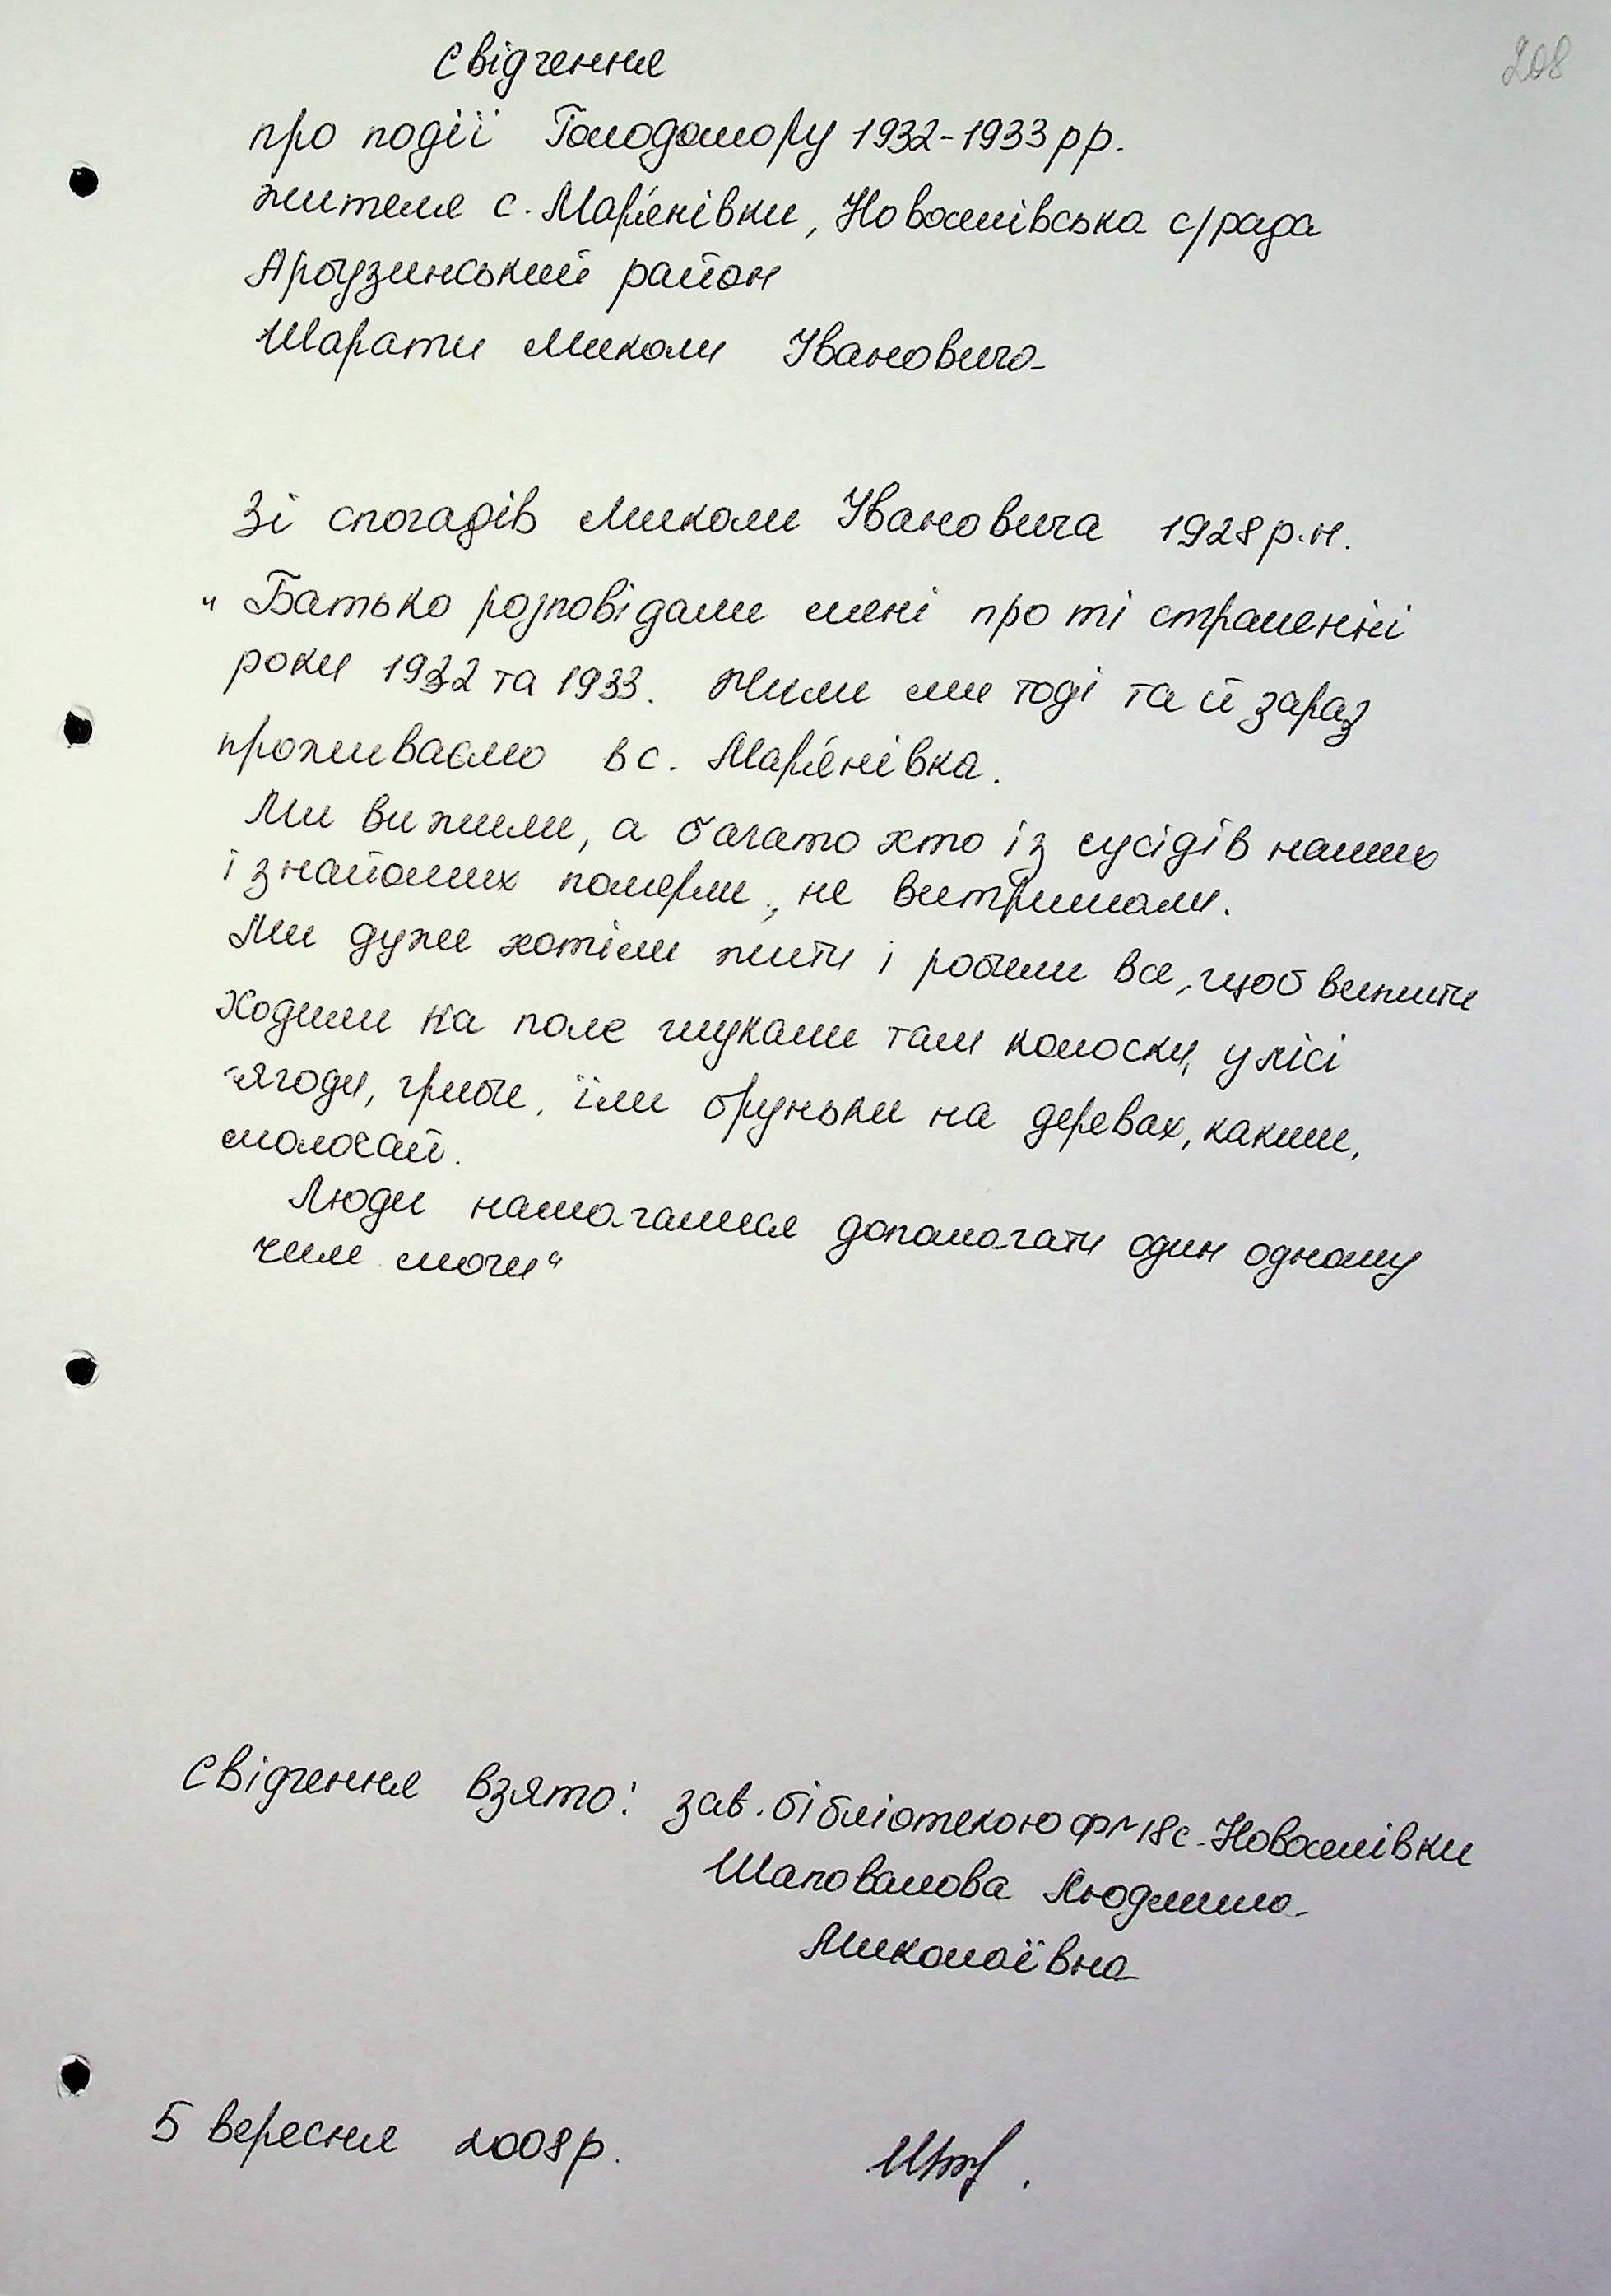 208
Свідчення
про події Голодомору 1932-1933 рр.
жителя с. Мар'янівки, Новоселівська с/рада
Арбузинський район
Шарати Миколи Івановича
Зі спогадів Миколи Івановича 1928 р.н.
"Батько розповідали мені про ті страшенні
роки 1932 та 1933. Жили ми тоді та й зараз
проживаємо в с. Мар'янівка.
Ми вижили, а багато хто із сусідів наших
і знайомих померли, не витримали.
Ми дуже хотіли жити і робили все, щоб вижити
Ходили на поле шукали там колоски, у лісі
ягоди, гриби, їли бруньки на деревах, какиші,
молочай.
Люди намагалися допомагати один одному
чим могли"
Свідчення взято: зав. бібліотекою ф№18 с. Новоселівки
Шаповалова Людмила
Миколаївна
5 вересня 2008 р.